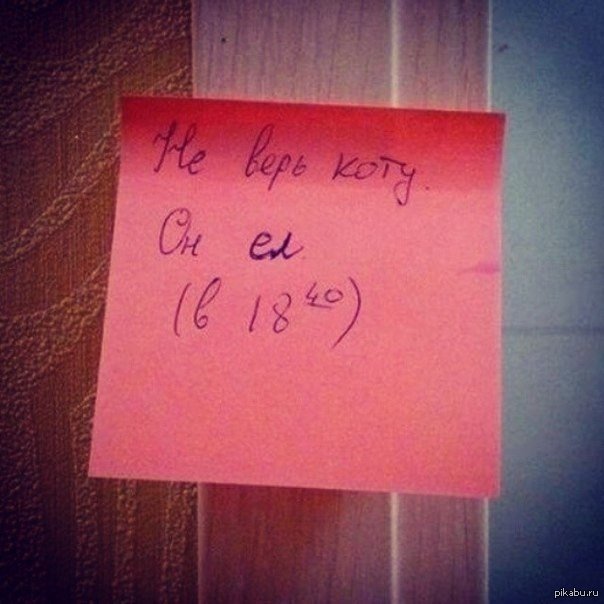 Не верь коту.
Он ел.
(в 18 40)
pikabu.ru